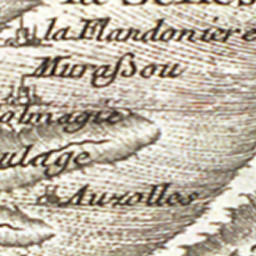 la Flandoniere
Muraßou
almagie
ulage
Auzolles